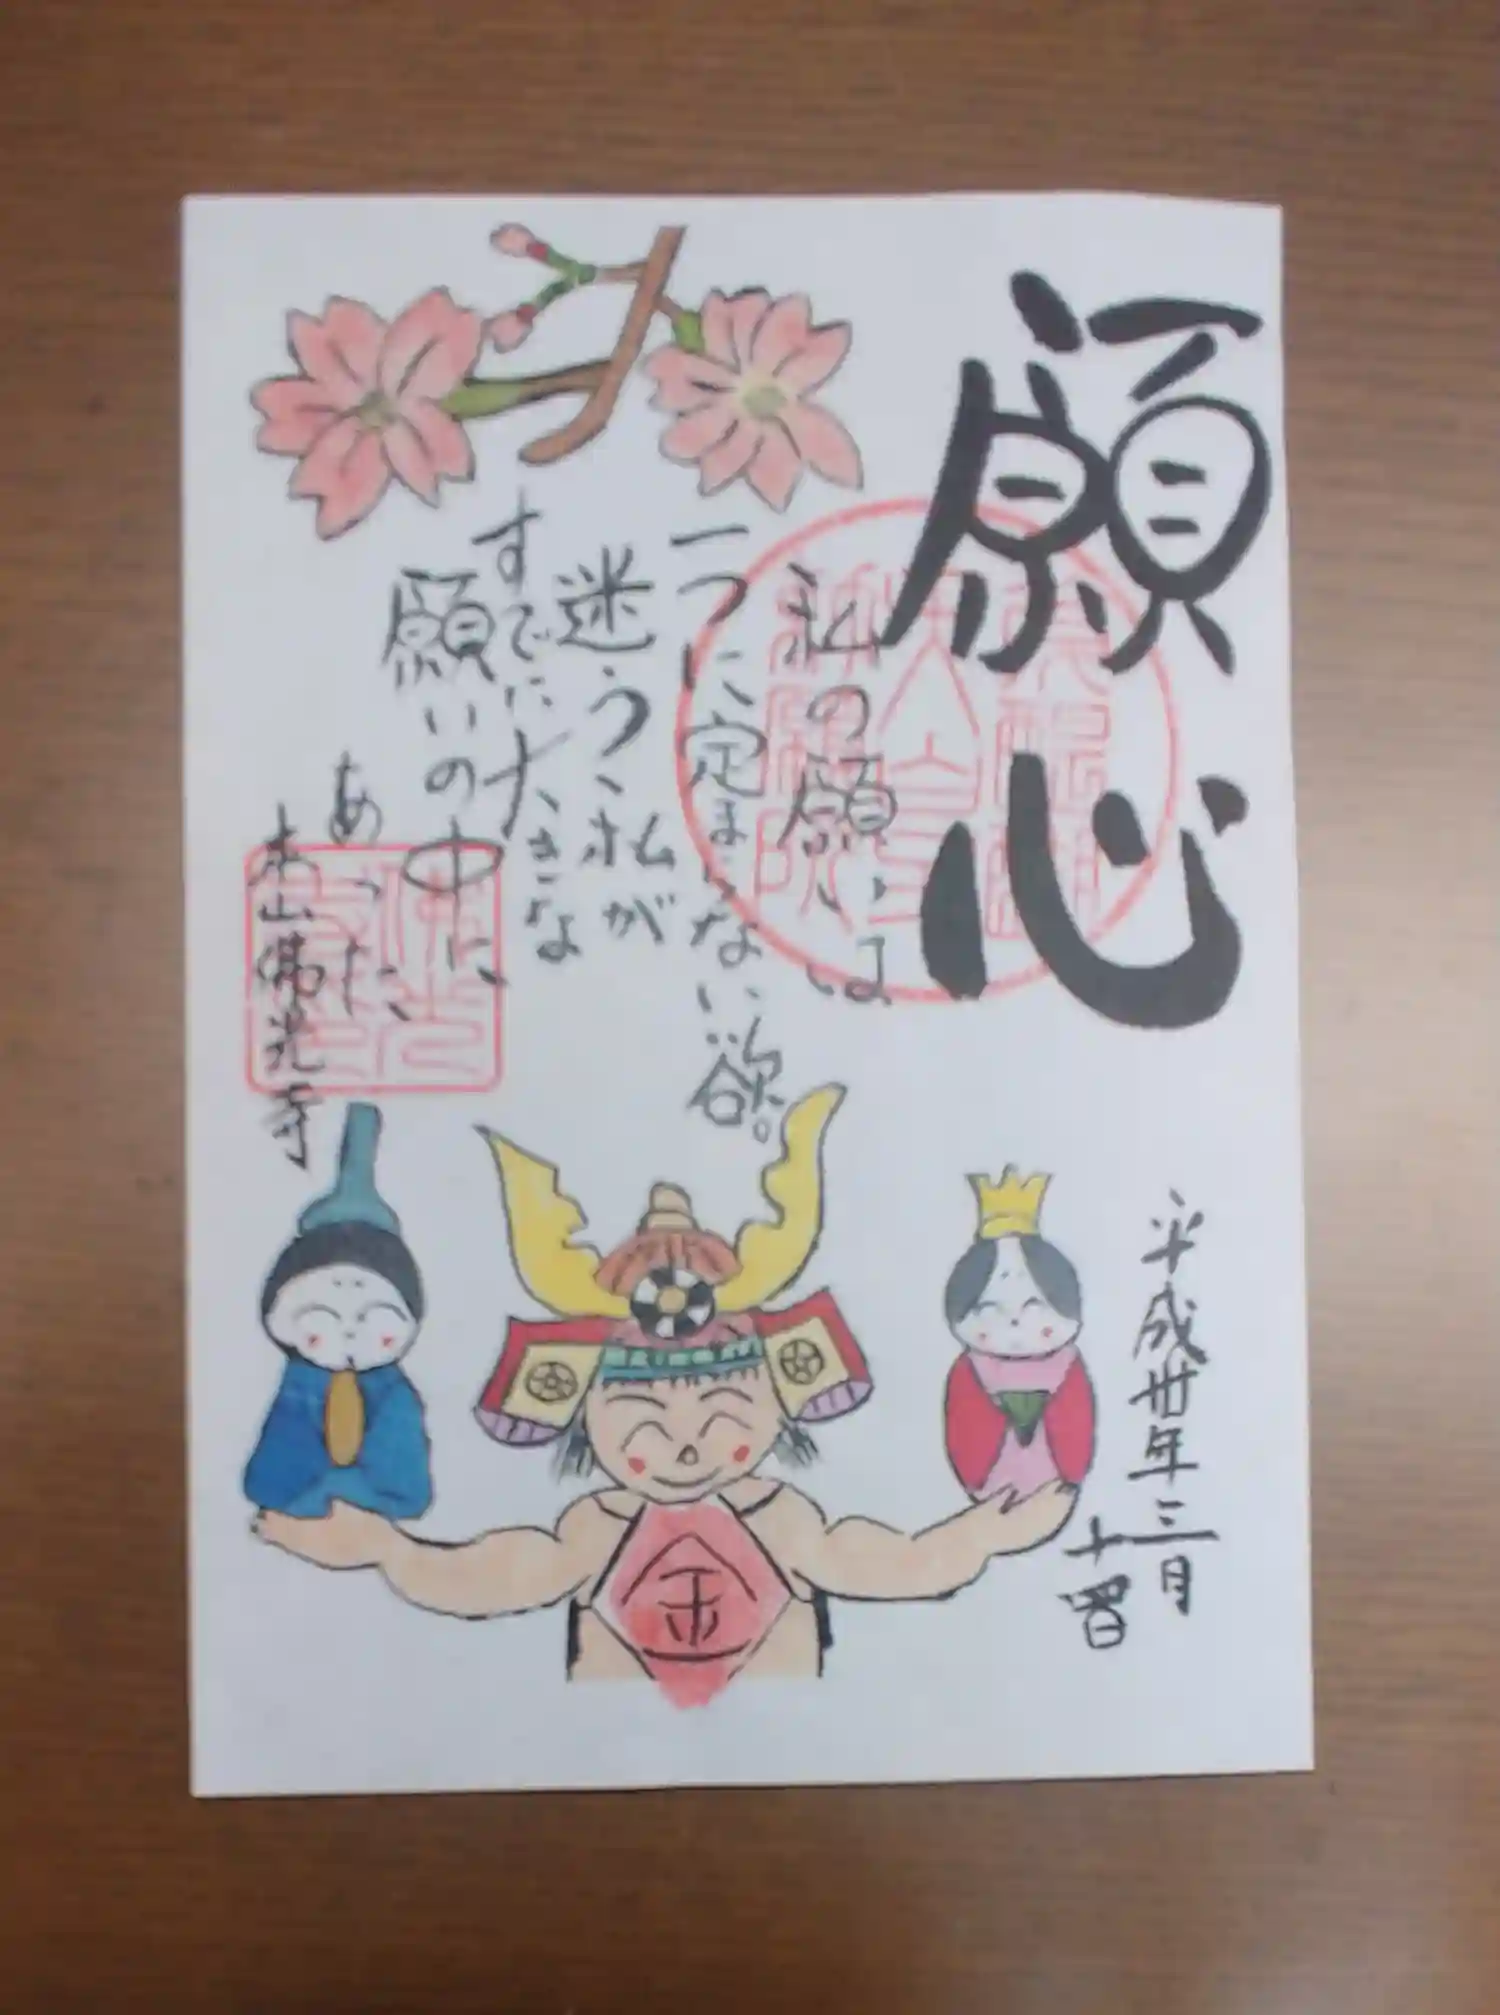 願心
私の願いは
一つに定まらない欲。
迷う私が
すでに大きな
願いの中に
あった
本山佛光寺
平成卅年三月
十四日
金